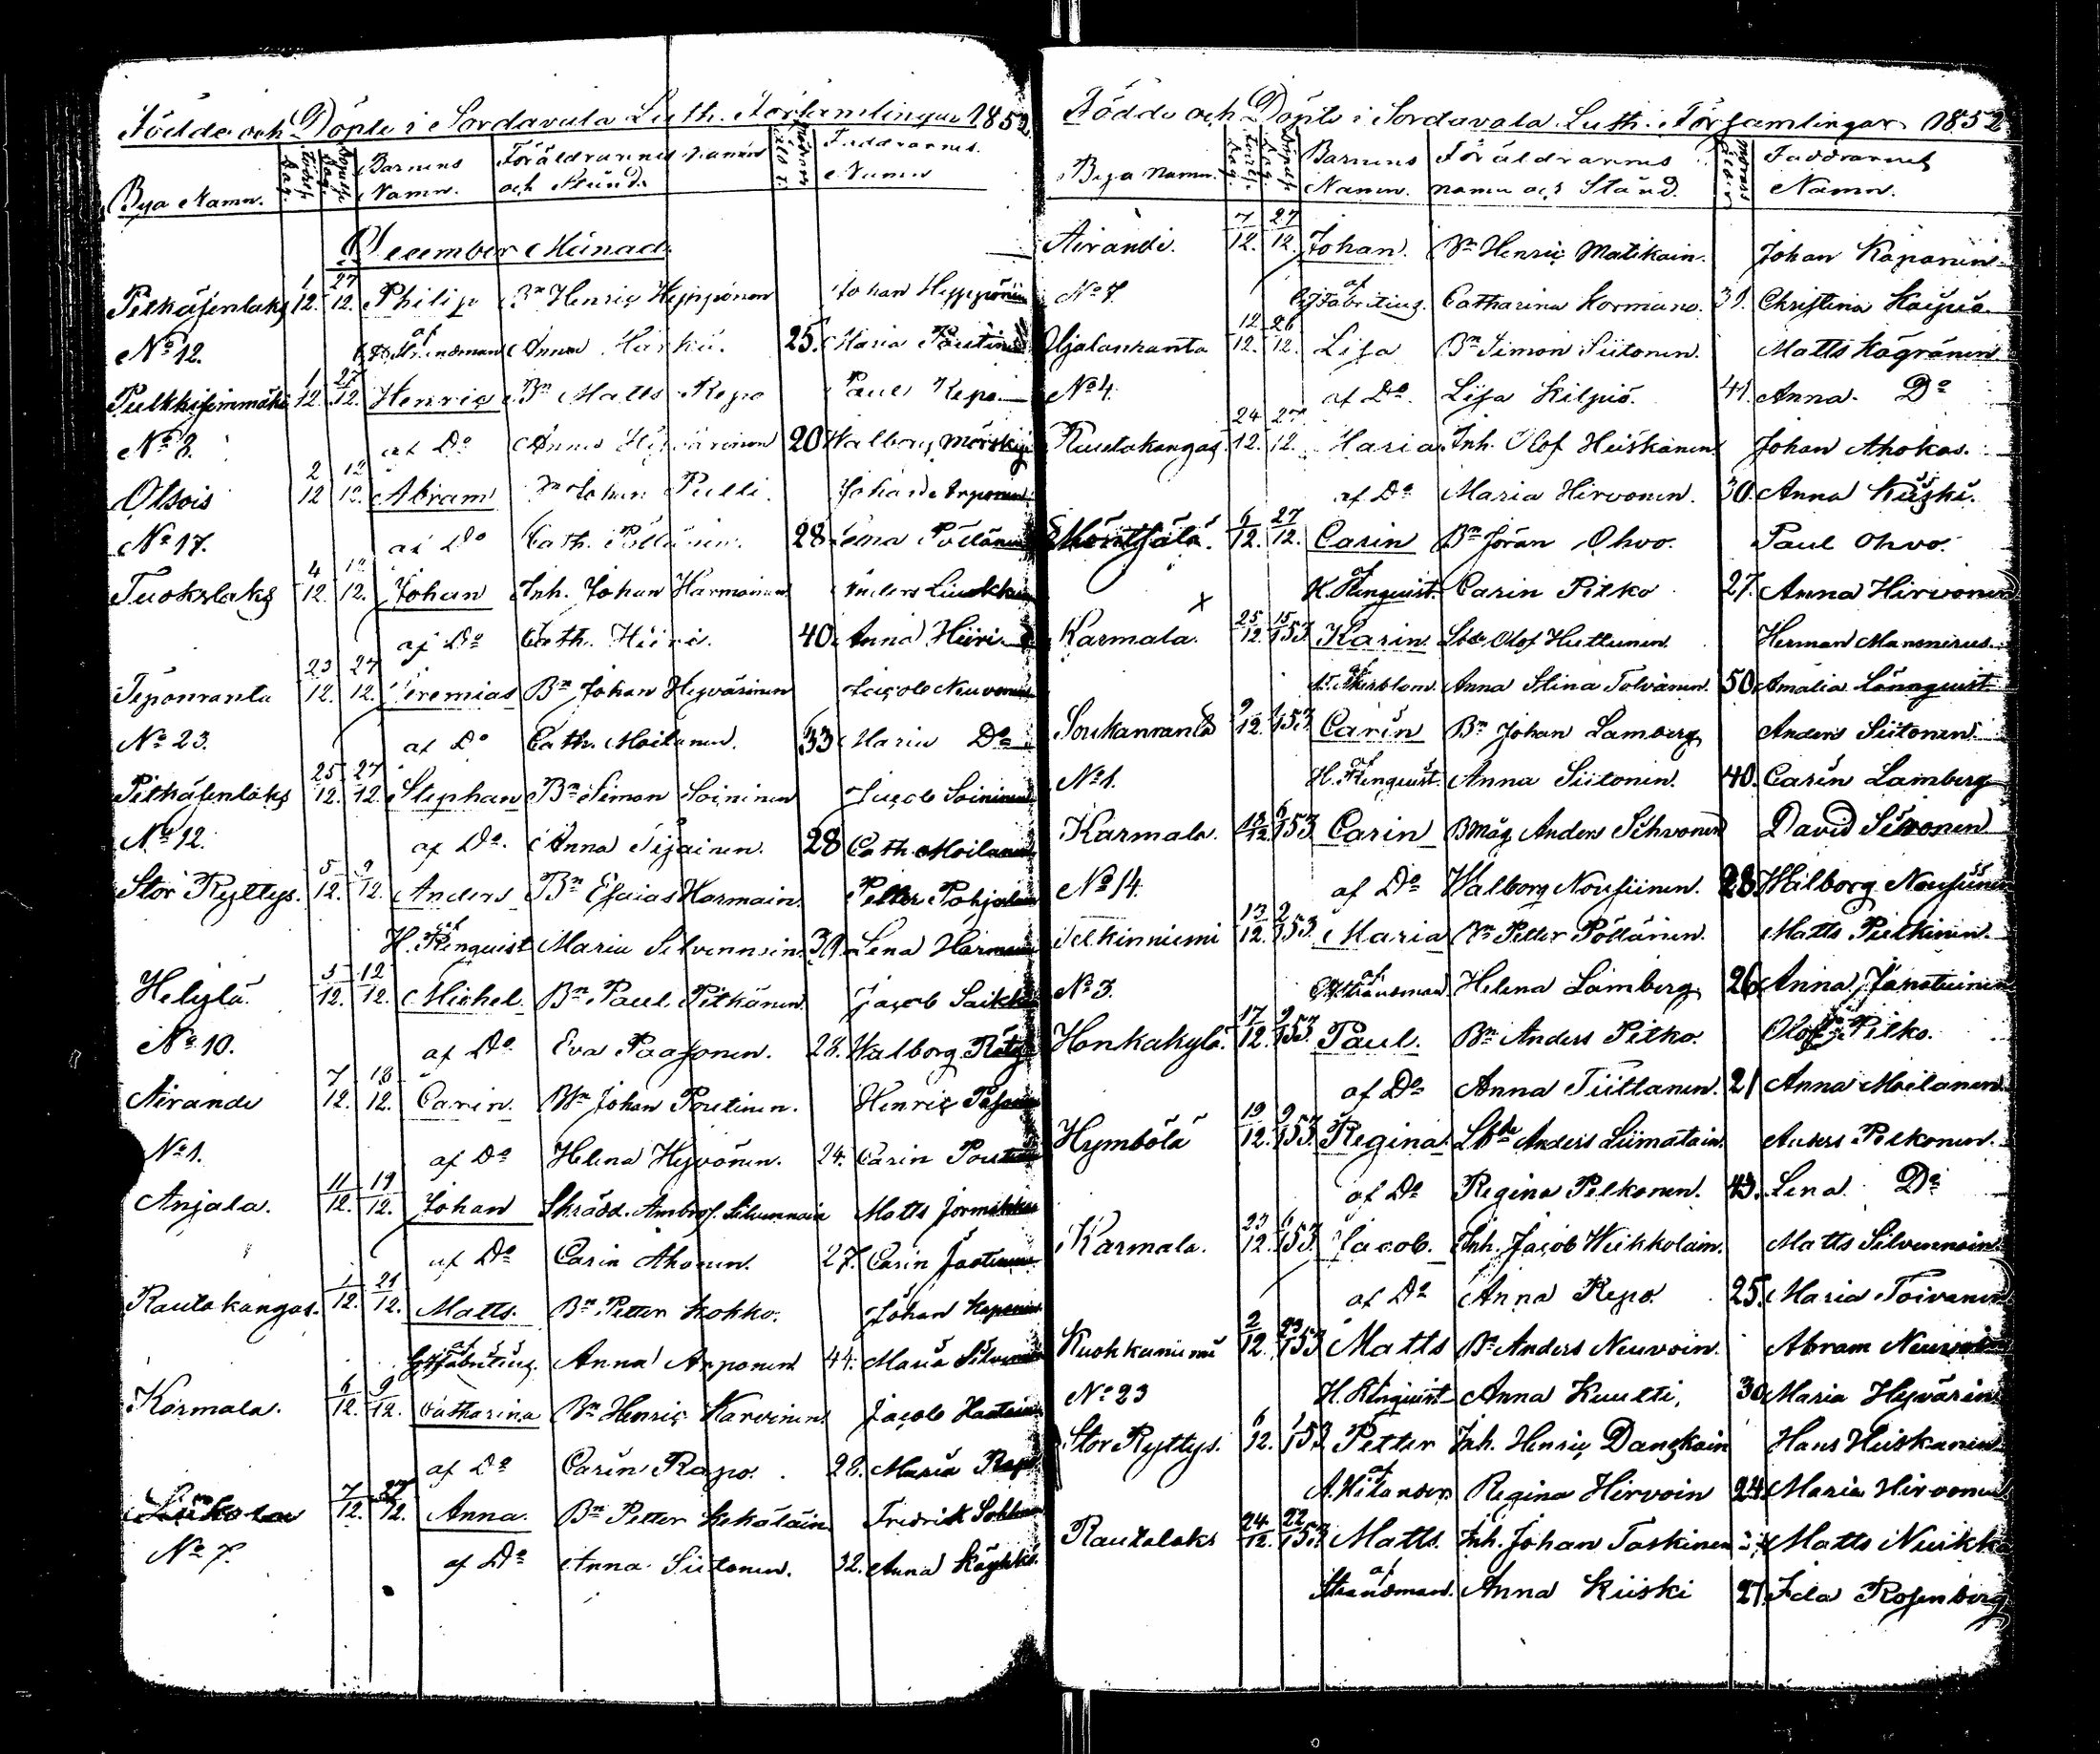 Födde och Döpte i Sordavala Luth. Församlingar 1852.
Bya Namn. Född Dag. Döpelse Dag. Barnens Namn. Föräldrarnes namn och Stånd. Modrens ålder. Faddrarnes Namn
December Månad.
Pitkäjenlaks 1/12. 27/12. Philip Bn Henric Hyppönen Johan Hyppönin
No 12. af Strandman Anna Harku. 25. Maria
Pulkkisenmäki 1/12. 27/12. Henric Bn Matts Repo Paul Repo
No 3. af Do Anna Hyvärinen 20 Walborg
Otsois 2/12 12/12. Abram Bn Johan Pulli. Johan Arponen
No 17. af Do Cath. Pöllänen. 28 Lena Pöllänen
Tuokslaks 4/12. 12/12. Johan Inh. Johan Harmoinen Anders
af Do Cath. Hiiri. 40. Anna Hiiri
Teponranta 23/12. 27/12. Jeremias Bn Johan Hyvärinen Jacob Neuvonen
No 23. af Do Cath. Moilanen. 33 Maria Do
Pitkäjenlaks 25/12. 27/12. Stephan Bn Simon Soininen Jacob Soininen
No 12. af Do. Anna Sijainen. 28 Cath. Moilanen
Stor Ryttys. 5/12. 9/12. Anders Bn Esaias Harmain. Petter Pohjolain
af H. Renquist Maria Silvennoin 39. Lena Harmain
Helylä. 5/12. 12/12. Michel. Bn Paul Pitkänen. Jacob
No 10. af Do Eva Paasonen. 28. Walborg
Airande 7/12. 13/12. Carin. Bn Johan Poutinen. Henric
No 1. af Do Helena Hyvönen. 24. Carin Poutinen
Anjala. 11/12. 19/12. Johan Skrädd. Ambros. Silvennoin Matts Jormakka
af Do Carin Ahonen. 27. Carin
Rautakangas. 1/12. 21/12. Matts. Bn Petter Kokko. Johan Kaponin
af G. Fabritius. Anna Arponen 44. Maria Silvennoin
Karmala. 6/12. 9/12. Catharina Bn Henric Karvinen. Jacob
af Do Carin Rapo. 28. Maria Rapo
7/12. 27/12. Anna. Bn Petter Kekäläin. Fredrik
No 7. af Do Anna Siitonen. 32. Anna Käyhkö
Födde och Döpte i Sordavala Luth. Församlingar 1852
Bya Namn. Födelse Dag. Döpelse Dag. Barnens Namn. Föräldrarnes namn och Stånd. Modrens ålder Faddrarnes Namn.
Airandi. 7/12. 27/12. Johan. Bn Henric Matikain. Johan Kaponin
No 7. af G. Fabritius. Catharina Kormano. 31. Christina
Ojalanranta 12/12. 26/12. Lisa Bn Simon Siitonen. Matts Kägränen
No 4. af Do. Lisa Kilpiö. 41. Anna. Do
Rautakangas 24/12. 27/12. Maria Inh. Olof Heiskanen Johan Ahokas.
af Do Maria Hirvonen. 30. Anna Kiiski.
6/12. 27/12. Carin Bn Jöran Ohvo. Paul Ohvo.
af H. Renquist. Carin Pitko 27. Anna Hirvonen
x
Karmala. 25/12. 15/1 53. Karin Olof Huttunen. Herman Manonerus.
af Åkerblom. Anna Stina Tolvanen. 50 Amalia Lönnquist
Soukanranta 9/12. 1/1 53 Carin Bn Johan Lamberg Anders Siitonen
No 1. af H. Renquist. Anna Siitonen. 40. Carin Lamberg
Karmala. 12/12 6/1 53 Carin Bmåg Anders Sihvonen David Sihvonen
No 14. af Do Walborg Nousiinen. 28. Walborg Nousiinen
13/12. 2/1 53. Maria Bn Petter Pöllänen. Matts Pulkinen.
No 3. af Strandman Helena Lamberg 26. Anna
Honkakylä. 17/12. 9/1 53. Paul. Bn Anders Pitko. Olof Pitko.
af Do Anna Tiittanen. 21 Anna Moilanen
Hymbölä 19/12. 9/1 53. Regina. Anders Liimatain. Anders Pelkonen.
af Do Regina Pelkonen. 43. Lena Do
Karmala. 23/12. 6/1 53. Jacob. Inh. Jacob Weikkolain. Matts Silvennoin.
af Do Anna Repo. 25. Maria Toivanen
Kuokkaniemi 2/12. 23/1 53 Matts Bn Anders Neuvoin. Abram Neuvoin
No 23 H. Renquist Anna Kuulti, 30 Maria Hyvärin
Stor Ryttys. 6/12. 1/1 53 Petter Inh. Henric Danskain Hans Heiskanen
af A. Hilander. Regina Hirvoin 24 Maria Hirvonen
Rautalaks 24/12. 22/1 53 Matts. Inh. Johan Taskinen Matts
af Strandman. Anna Kiiski 27. Ida Rosenberg